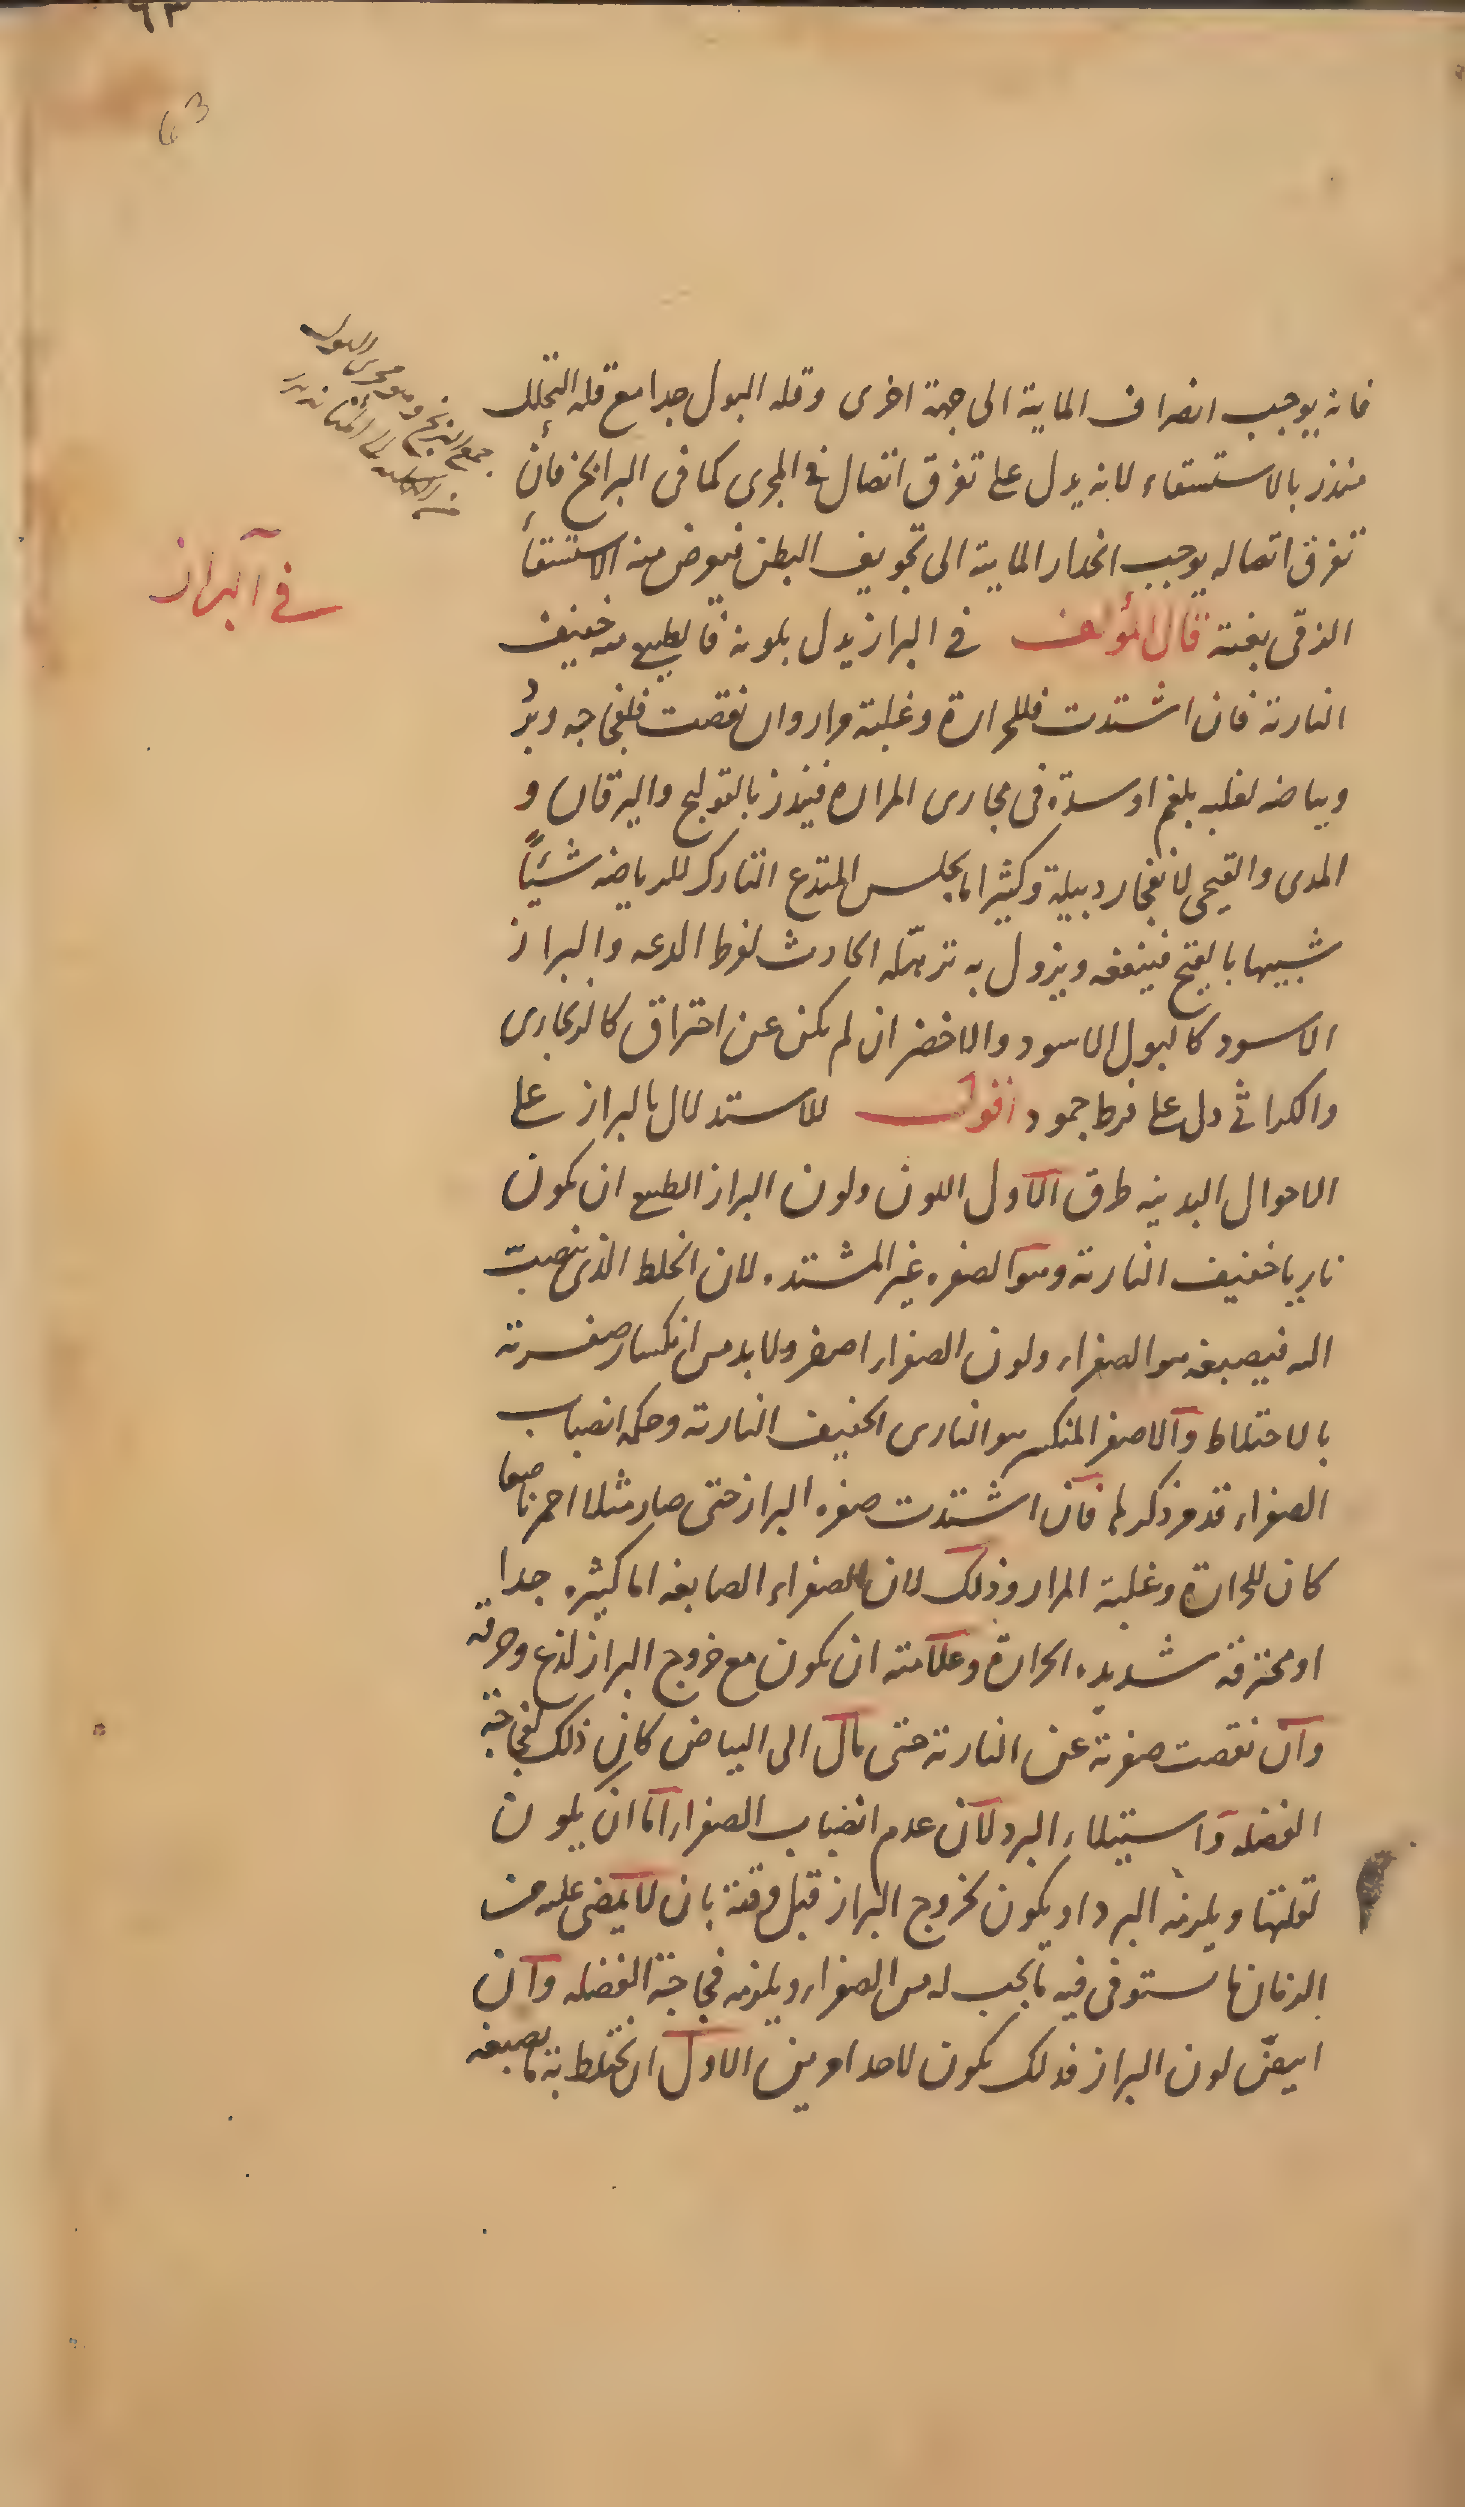 ٦٣
63
فانه يوجب انصراف المايية الى جهة اخرى وقله البول جدا مع قله التحلل
منذر بالاستسقاء لانه يدل على تفرق اتصال فى المجرى كما فى البرابخ فان
تفرق اتصاله يوجب انحدار المايية الى تجويف البطن فيعرض منه الاستسقأ
الزقى بغتة قال المؤلف فى البراز يدل بلونه فالطبيعى منه خفيف
النارية فان اشتدت فللحرارة وغلبة مرار وان نقصت فلفجاجه وبرد
وبياضه لغلبه بلغم او سدة فى مجارى المراره فينذر بالقولنج واليرقان و
المدى والقيحى لانفجار دبيلة وكثيرا ما يجلس المتدع التارك للرياضه شيئًا
شبيها بالقيح فينفعه ويزول به ترهّله الحادث لفرط الدعه والبراز
الاسود كالبول الاسود والاخضر ان لم يكن عن احتراق كالزنجارى
والكراثى دل على فرط جمود اقول للاستدلال بالبراز على
الاحوال البدنيه طرق الاول اللون ولون البراز الطبيعى ان يكون
ناريا خفيف النارية وهو الصفره غير المشتده لان الخلط الذى ينصب
اليه فيصبغه هو الصفراء ولون الصفراء اصفر ولا بد من انكسار صفرته
بالاختلاط والاصفر المنكسر هو النارى الخفيف النارية وحكمه انصباب
الصفراء قد مر ذكرها فان اشتدت صفره البراز حتى صار مثلا احمر ناصعا
كان للحرارة وغلبة المرار وذلك لان الصفراء الصابغه اما كثيره جدا
او محترقة شديده الحرارة وعلامته ان يكون مع خروج البراز لذع وحرقه
وان نقصت صفرته عن النارية حتى مال الى البياض كان ذلك لفجاجة
الفضله واستيلاء البرد لان عدم انصباب الصفراء اما ان يكون
لقلتها ويلزمه البرد او يكون لخروج البراز قبل وقته بان لا يمضى عليه من
الزمان ما يستوفى فيه ما يجب له من الصفراء ويلزمه فجاجة الفضله وان
ابيضّ لون البراز فذلك يكون لاحد امرين الاول ان يختلط به ما يصبغه
جمع البربخ وهو مجرى البول
من الكليه الى المثانه
فى البراز